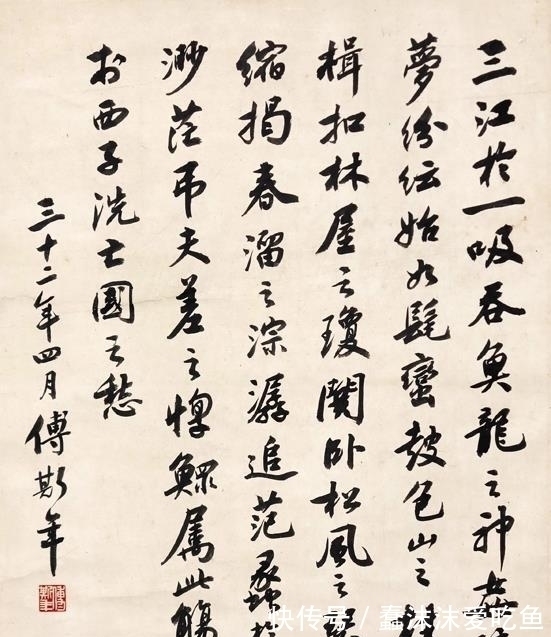 三江於一吸吞魚龍之神
夢紛紜始如髦蠻鼓包山之
楫扣林屋之瓊關卧松風之
縮揭春溜之淙潺追范蠡於
渺茫吊夫差之惸鰥屬此觴
於西子洗亡國之愁
三十二年四月傅斯年
快传号/蠢沫沫爱吃鱼